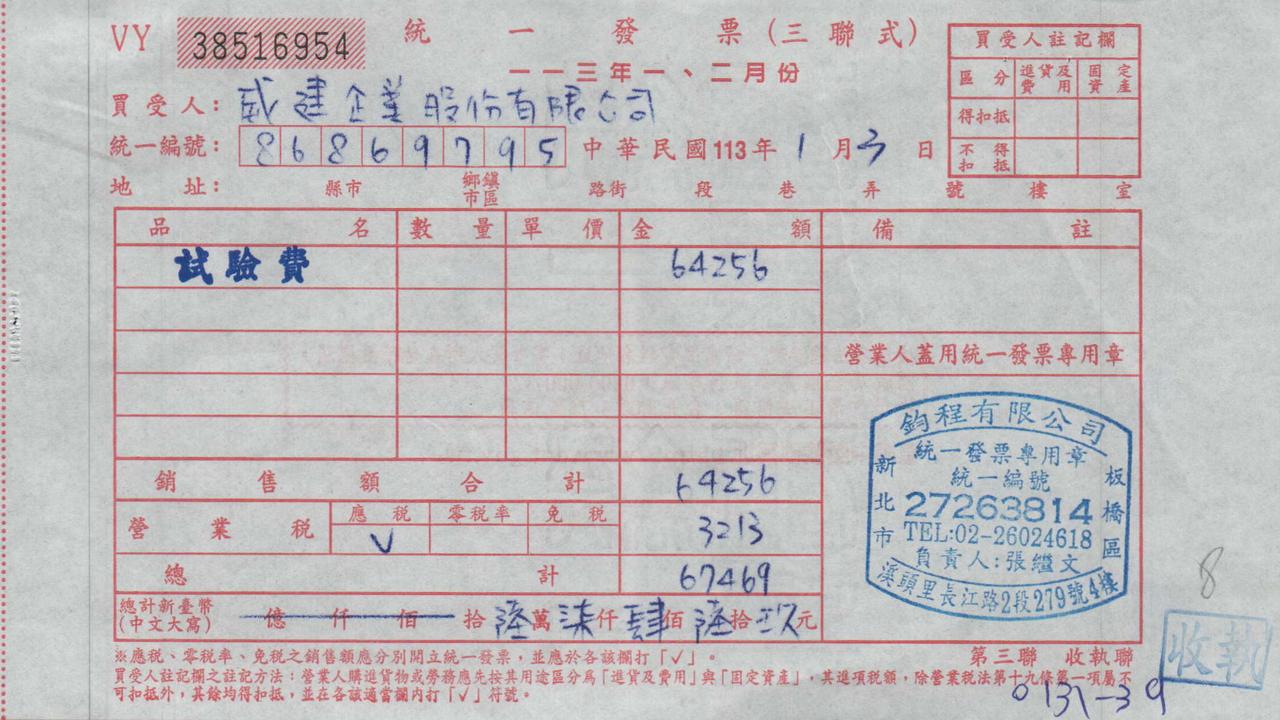 VY 38516954 統一發票(三聯式)
一一三年一、二月份
買受人註記欄
區分 進貨及費用 固定資產
得扣抵
不得扣抵
買受人: 威建企業股份有限公司
統一編號: 86869795 中華民國113年1月3日
地址: 縣市 鄉鎮市區 路街 段 巷 弄 號 樓 室
品名 數量 單價 金額 備註
試驗費 64256
營業人蓋用統一發票專用章
銷售額合計 64256
營業稅 應稅 零稅率 免稅 3213
V
總計 67469
總計新臺幣(中文大寫) 億仟佰拾陸萬柒仟肆佰陸拾玖元
鈞程有限公司
統一發票專用章
統一編號
27263814
TEL:02-26024618
負責人:張繼文
新北市板橋區
溪頭里長江路2段279號4樓
8
※應稅、零稅率、免稅之銷售額應分別開立統一發票,並應於各該欄打「✓」。
第三聯 收執聯
收執
買受人註記欄之註記方法:營業人購進貨物或勞務應先按其用途區分為「進貨及費用」與「固定資產」,其進項稅額,除營業稅法第十九條第一項屬不
可扣抵外,其餘均得扣抵,並在各該適當欄內打「✓」符號。
0131-39